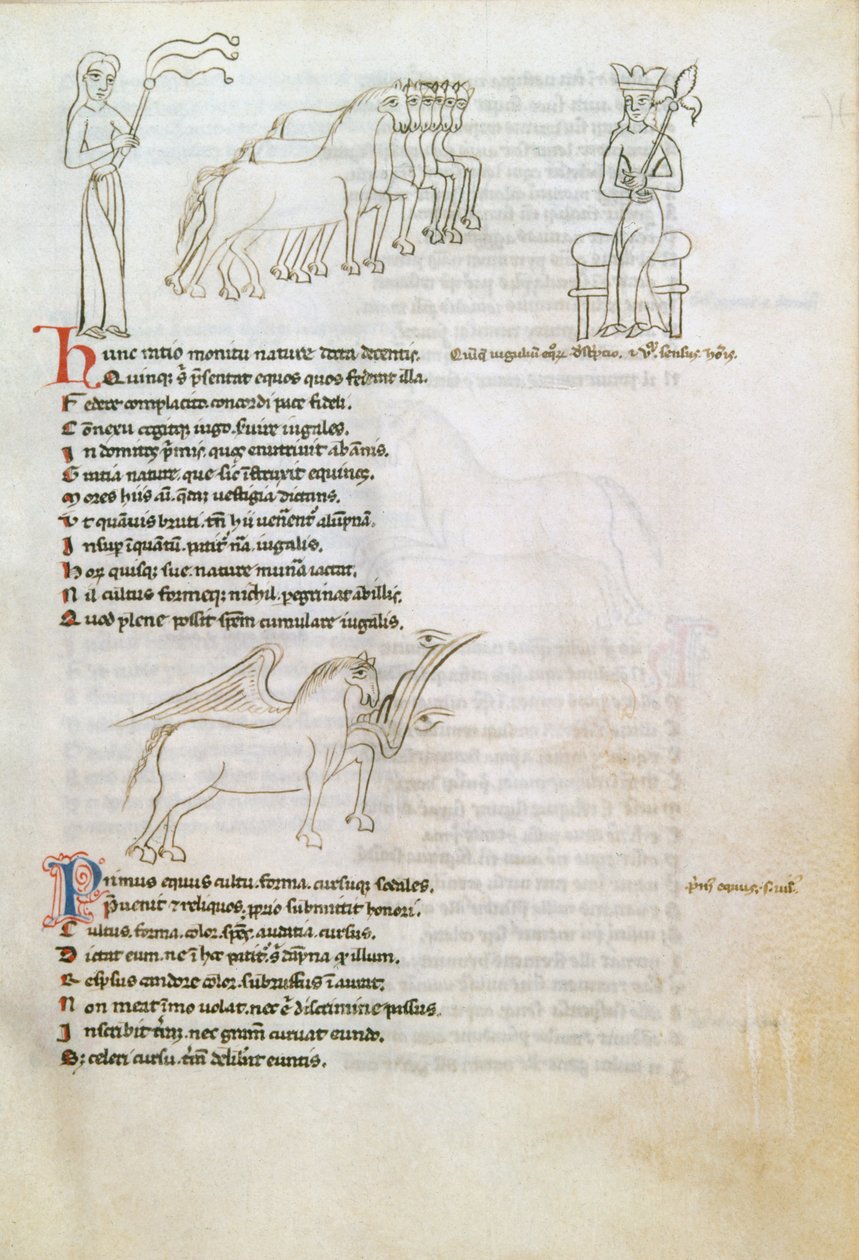 Hunc ratio monitu nature ducta decentis.
Quinqꝫ s̄ p̄sentat equos quos federat illa.
Federe complacito. concordi pace fideli.
Cōnexu cogitqꝫ iugo. seruire iugales.
Indomitos p̄mis. quos enutriuit ab ānis.
Gratia nature. que sic īstruxit equinos.
Mores hiis uestigia dictans.
Vt quāuis bruti. tn̄ hii uen̄ent᷑ alūpnā.
Insup īquantū. patit᷑ nā. iugalis.
Hoꝝ quisqꝫ sue. nature mun̄a iactat.
Nil cultus formeqꝫ nichil. pegrinat ab illis.
Quod plene possit sp̄em cumulare iugalis.
Quiqꝫ iugaliū eqoꝝ dsc̄ptio. ꝫ sensus. hōis.
Primus equus cultu. forma. cursuqꝫ sodales.
P̄uenit ⁊ reliquos. ꝓprio submittit honori.
Cultus. forma. color. sp̄es. audatia. cursus.
Ditat eum. ne ī hoc patit᷑. s̄ dāpna q illum.
Respsus candore color. subruffus īaurat.
Non meat īmo uolat. nec ē discrimine passus.
Inscribit t̄rā. nec gramē curuat eundo.
Sꝫ celeri cursu. t̄rā delibat euntis.
p̄m᷒ equus. s. uis᷒.